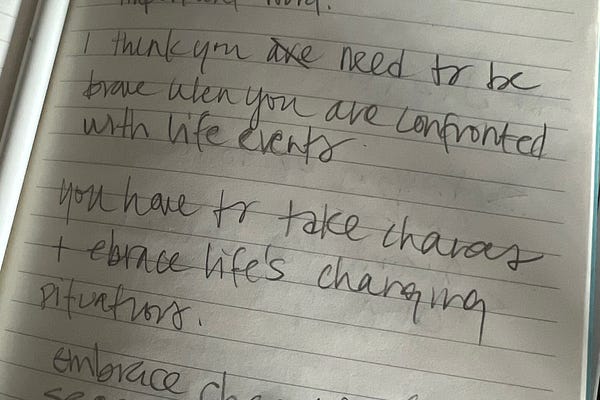 I think you are need to be
brave when you are confronted
with life events.
you have to take chances
+ ebrace life's changing
situations.
embrace